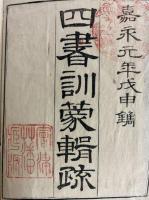 嘉永元年戊申鐫
四書訓蒙輯疏